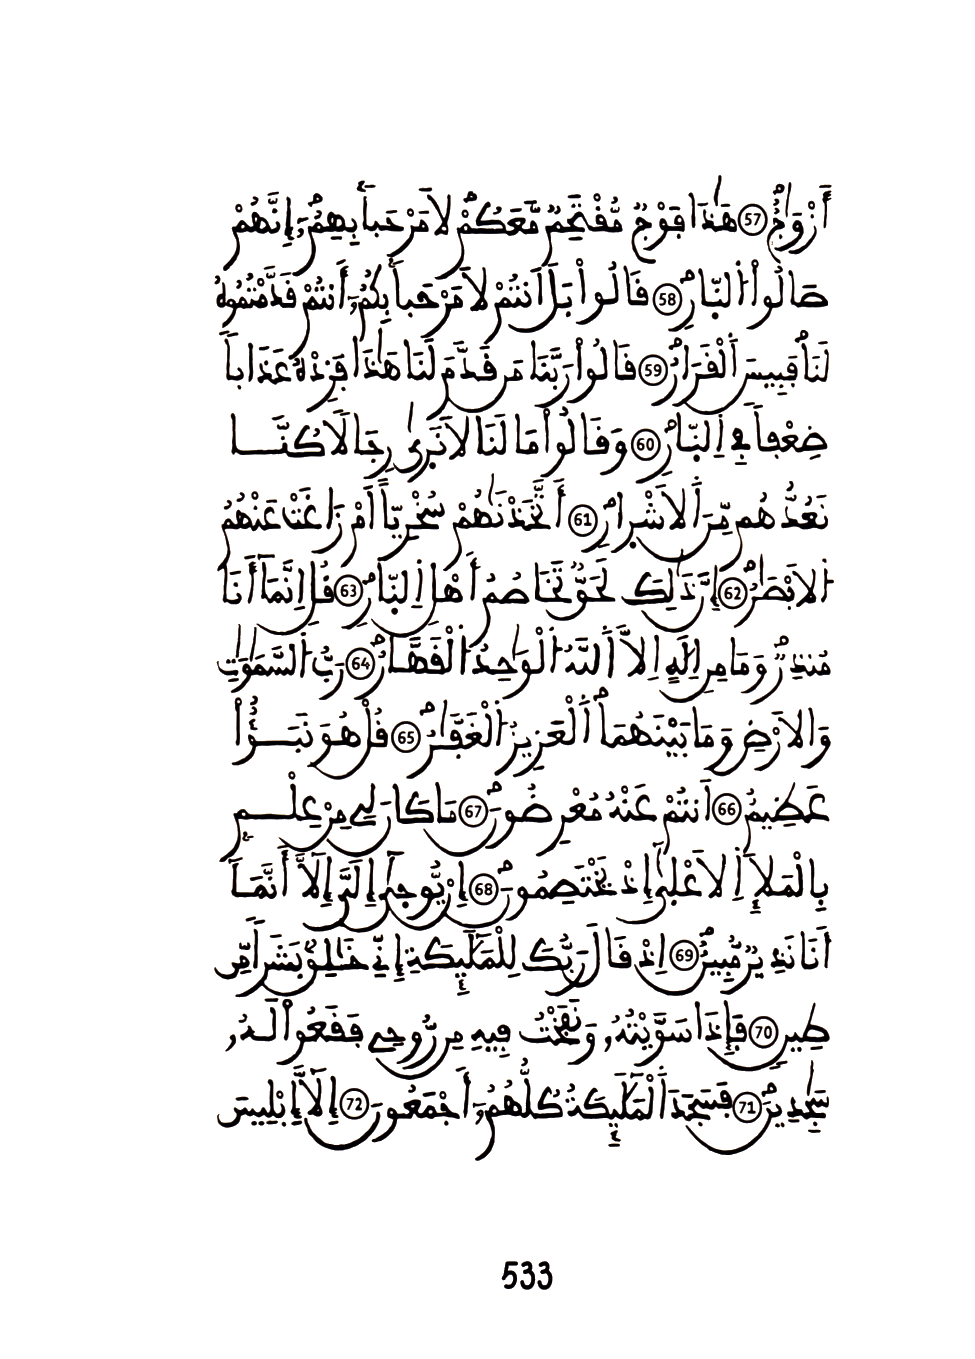 أَزْوَٰجٌ 57 هَٰذَا فَوْجٞ مُّقْتَحِمٞ مَّعَكُمْ لَا مَرْحَباَۢ بِهِمُۥٓ إِنَّهُمْ
صَالُواْ اُ۬لنّ۪ارِ 58 قَالُواْ بَلَ اَنتُمْ لَا مَرْحَباَۢ بِكُمُۥٓ أَنتُمْ قَدَّمْتُمُوهُ
لَنَا فَبِيسَ اَ۬لْقَرَارُ 59 قَالُواْ رَبَّنَا مَن قَدَّمَ لَنَا هَٰذَا فَزِدْهُ عَذَاباٗ
ضِعْفاٗ فِے اِ۬لنّ۪ارِ 60 وَقَالُواْ مَا لَنَا لَا نَر۪يٰ رِجَالاٗ كُنَّا
نَعُدُّهُم مِّنَ اَ۬لَاشْر۪ارِ 61 أَتَّخَذْنَٰهُمْ سُخْرِيّاً اَمْ زَاغَتْ عَنْهُمُ
اُ۬لَابْصَٰرُ 62 إِنَّ ذَٰلِكَ لَحَقّٞ تَخَاصُمُ أَهْلِ اِ۬لنّ۪ارِ 63 قُلِ اِنَّمَآ أَنَا
مُنذِرٞ وَمَا مِنِ اِلَٰهٍ اِلَّا اَ۬للَّهُ اُ۬لْوَٰحِدُ اُ۬لْقَهَّارُ 64 رَبُّ اُ۬لسَّمَٰوَٰتِ
وَالَارْضِ وَمَا بَيْنَهُمَا اَ۬لْعَزِيزُ اُ۬لْغَفَّٰرُ 65 قُلْ هُوَ نَبَؤٌاْ
عَظِيمٌ 66 اَنتُمْ عَنْهُ مُعْرِضُونَ 67 مَا كَانَ لِے مِنْ عِلْمِۢ
بِالْمَلَإِ اِ۬لَاعْل۪يٰٓ إِذْ يَخْتَصِمُونَ 68 إِنْ يُّوح۪يٰٓ إِلَيَّ إِلَّآ أَنَّمَآ
أَنَا نَذِيرٞ مُّبِينٌ 69 اِذْ قَالَ رَبُّكَ لِلْمَلَٰٓئِكَةِ إِنِّے خَٰلِقُۢ بَشَراٗ مِّن
طِينٖ 70 فَإِذَا سَوَّيْتُهُۥ وَنَفَخْتُ فِيهِ مِن رُّوحِے فَقَعُواْ لَهُۥ
سَٰجِدِينَ 71 فَسَجَدَ اَ۬لْمَلَٰٓئِكَةُ كُلُّهُمُۥٓ أَجْمَعُونَ 72 إِلَّآ إِبْلِيسَ
533